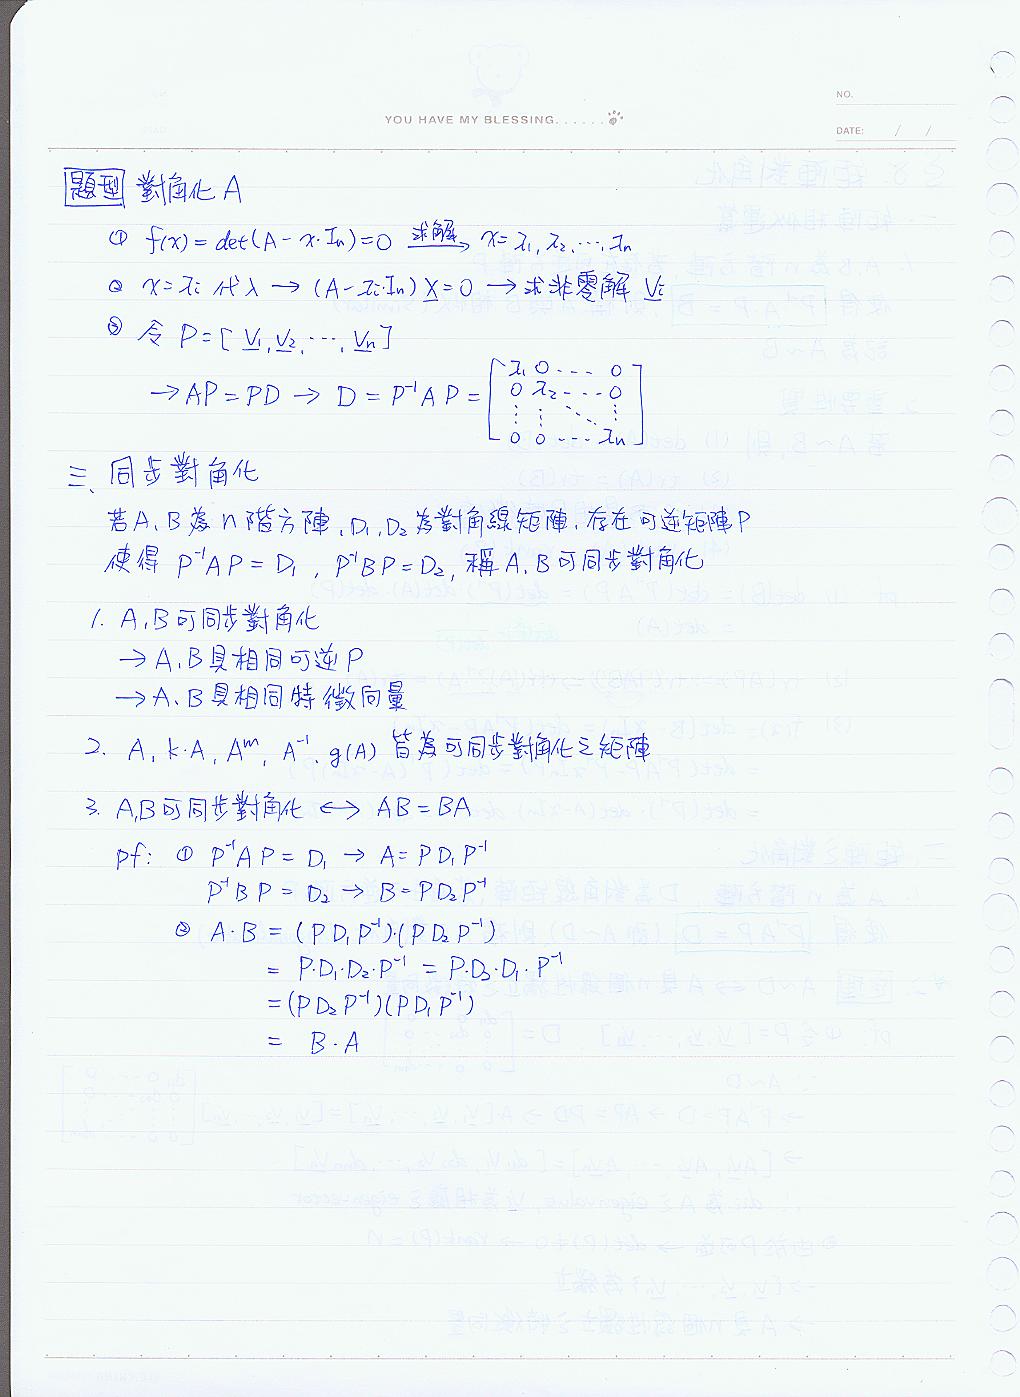 YOU HAVE MY BLESSING......
NO.
DATE: / /
題型 對角化 A
① f(x) = det(A - x·In) = 0 求解→ x = λ1, λ2, ..., λn
② x = λi 代入 → (A - λi·In) X = 0 → 求非零解 Vi
③ 令 P = [V1, V2, ..., Vn]
→ AP = PD → D = P⁻¹AP = [λ1 0 --- 0
0 λ2 --- 0
⋮ ⋮ ⋱ ⋮
0 0 --- λn]
三、同步對角化
若 A、B 為 n 階方陣, D1, D2 為對角線矩陣, 存在可逆矩陣 P
使得 P⁻¹AP = D1, P⁻¹BP = D2, 稱 A、B 可同步對角化
1. A, B 可同步對角化
→ A、B 具相同可逆 P
→ A、B 具相同特徵向量
2. A, k·A, Aᵐ, A⁻¹, g(A) 皆為可同步對角化之矩陣
3. A,B 可同步對角化 ↔ AB = BA
pf: ① P⁻¹AP = D1 → A = PD1P⁻¹
P⁻¹BP = D2 → B = PD2P⁻¹
② A·B = (PD1P⁻¹)·(PD2P⁻¹)
= P·D1·D2·P⁻¹ = P·D2·D1·P⁻¹
= (PD2P⁻¹)(PD1P⁻¹)
= B·A